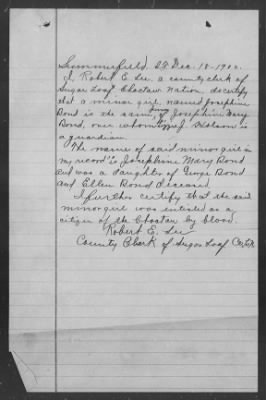 Summerfield I.T. Dec. 18- 1902.
I, Robert E. Lee, a county clerk of
Sugar Loaf Choctaw Nation, do certify
that a minor girl, named Josephine
Bond is the same, Josephine Mary
Bond, over whom J. Watson is
a guardian.
The name of said minor girl in
my record is Josephine Mary Bond
and was a daughter of George Bond
and Ellen Bond deceased
I further certify that the said
minor girl was entitled as a
citizen of the Choctaw by blood.
Robert E. Lee
County Clerk of Sugar Loaf